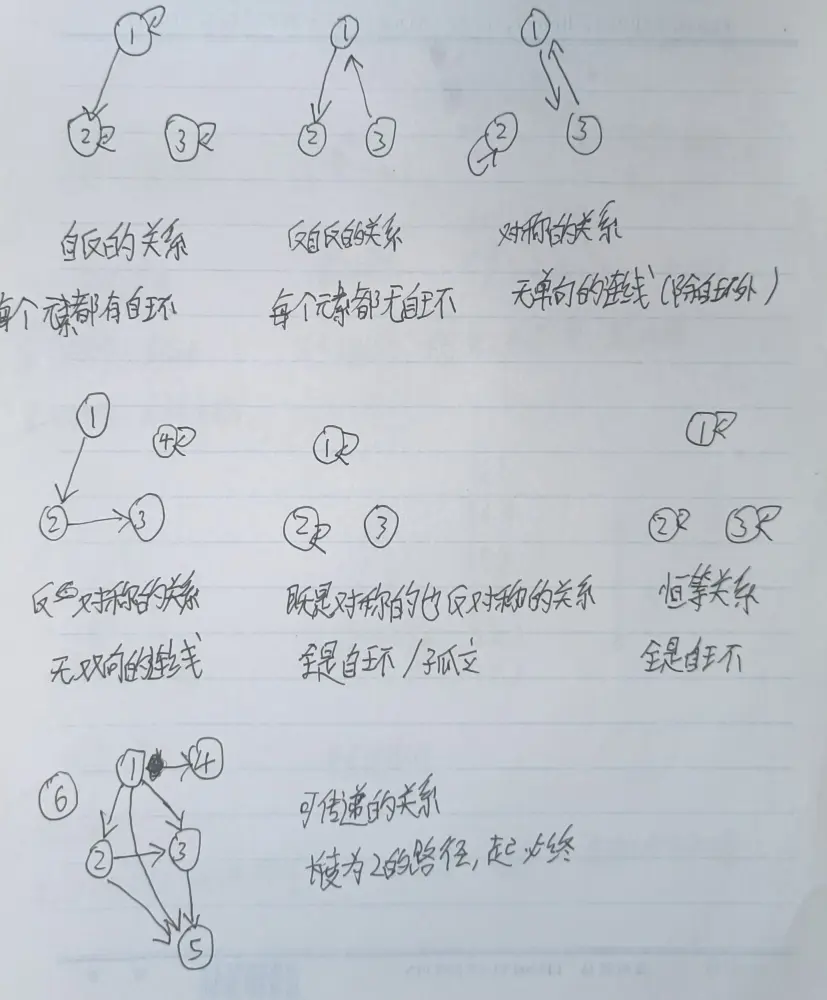 1
2 3
1
2 3
1
2 3
自反的关系
每个元素都有自环
反自反的关系
每个元素都无自环
对称的关系
无单向的连线(除自环外)
1 4
2 3
1
2 3
1
2 3
反对称的关系
无双向的连线
既是对称的也反对称的关系
全是自环/孤立
恒等关系
全是自环
1 4
6
2 3
5
可传递的关系
长度为2的路径,起必终